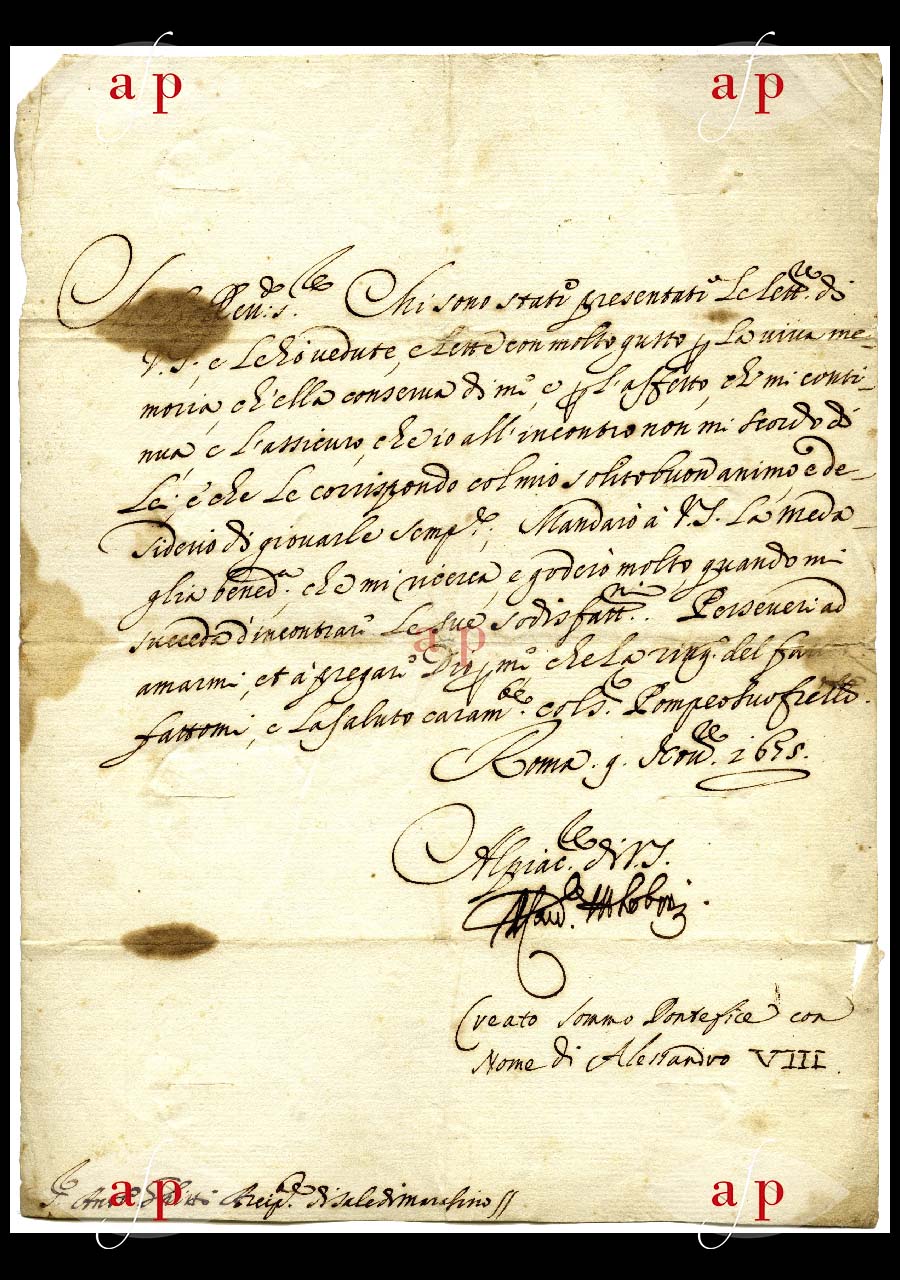 afp afp
Rev:do s.re Mi sono stati presentati Le lett.re di
V.S., e Le hò vedute, e lette con molto gusto p La viva me-
moria, ch'ella conserva di me, e p L'affetto, che mi conti-
nua, e L'assicuro, che io all'incontro non mi scordo di
Lei, e che Le corrispondo col mio solito buon animo, e de-
siderio di giovarle semp.re; Mandarò à V.S. La meda-
glia bened.a, che mi ricerca, e goderò molto, quando mi
succeda d'incontrare Le sue sodisfatt.ni. Perseveri ad
amarmi, et à pregare Dio p me, che La ring.o del
fattomi, e La saluto caram.te col s.r Pompeo suo frello.
Roma . 9 . Nov.re 1675.
Al piac.re di V.S.
Creato sommo Pontefice con
Nome di Alessandro VIII
afp
afp afp
di Sale di marasino